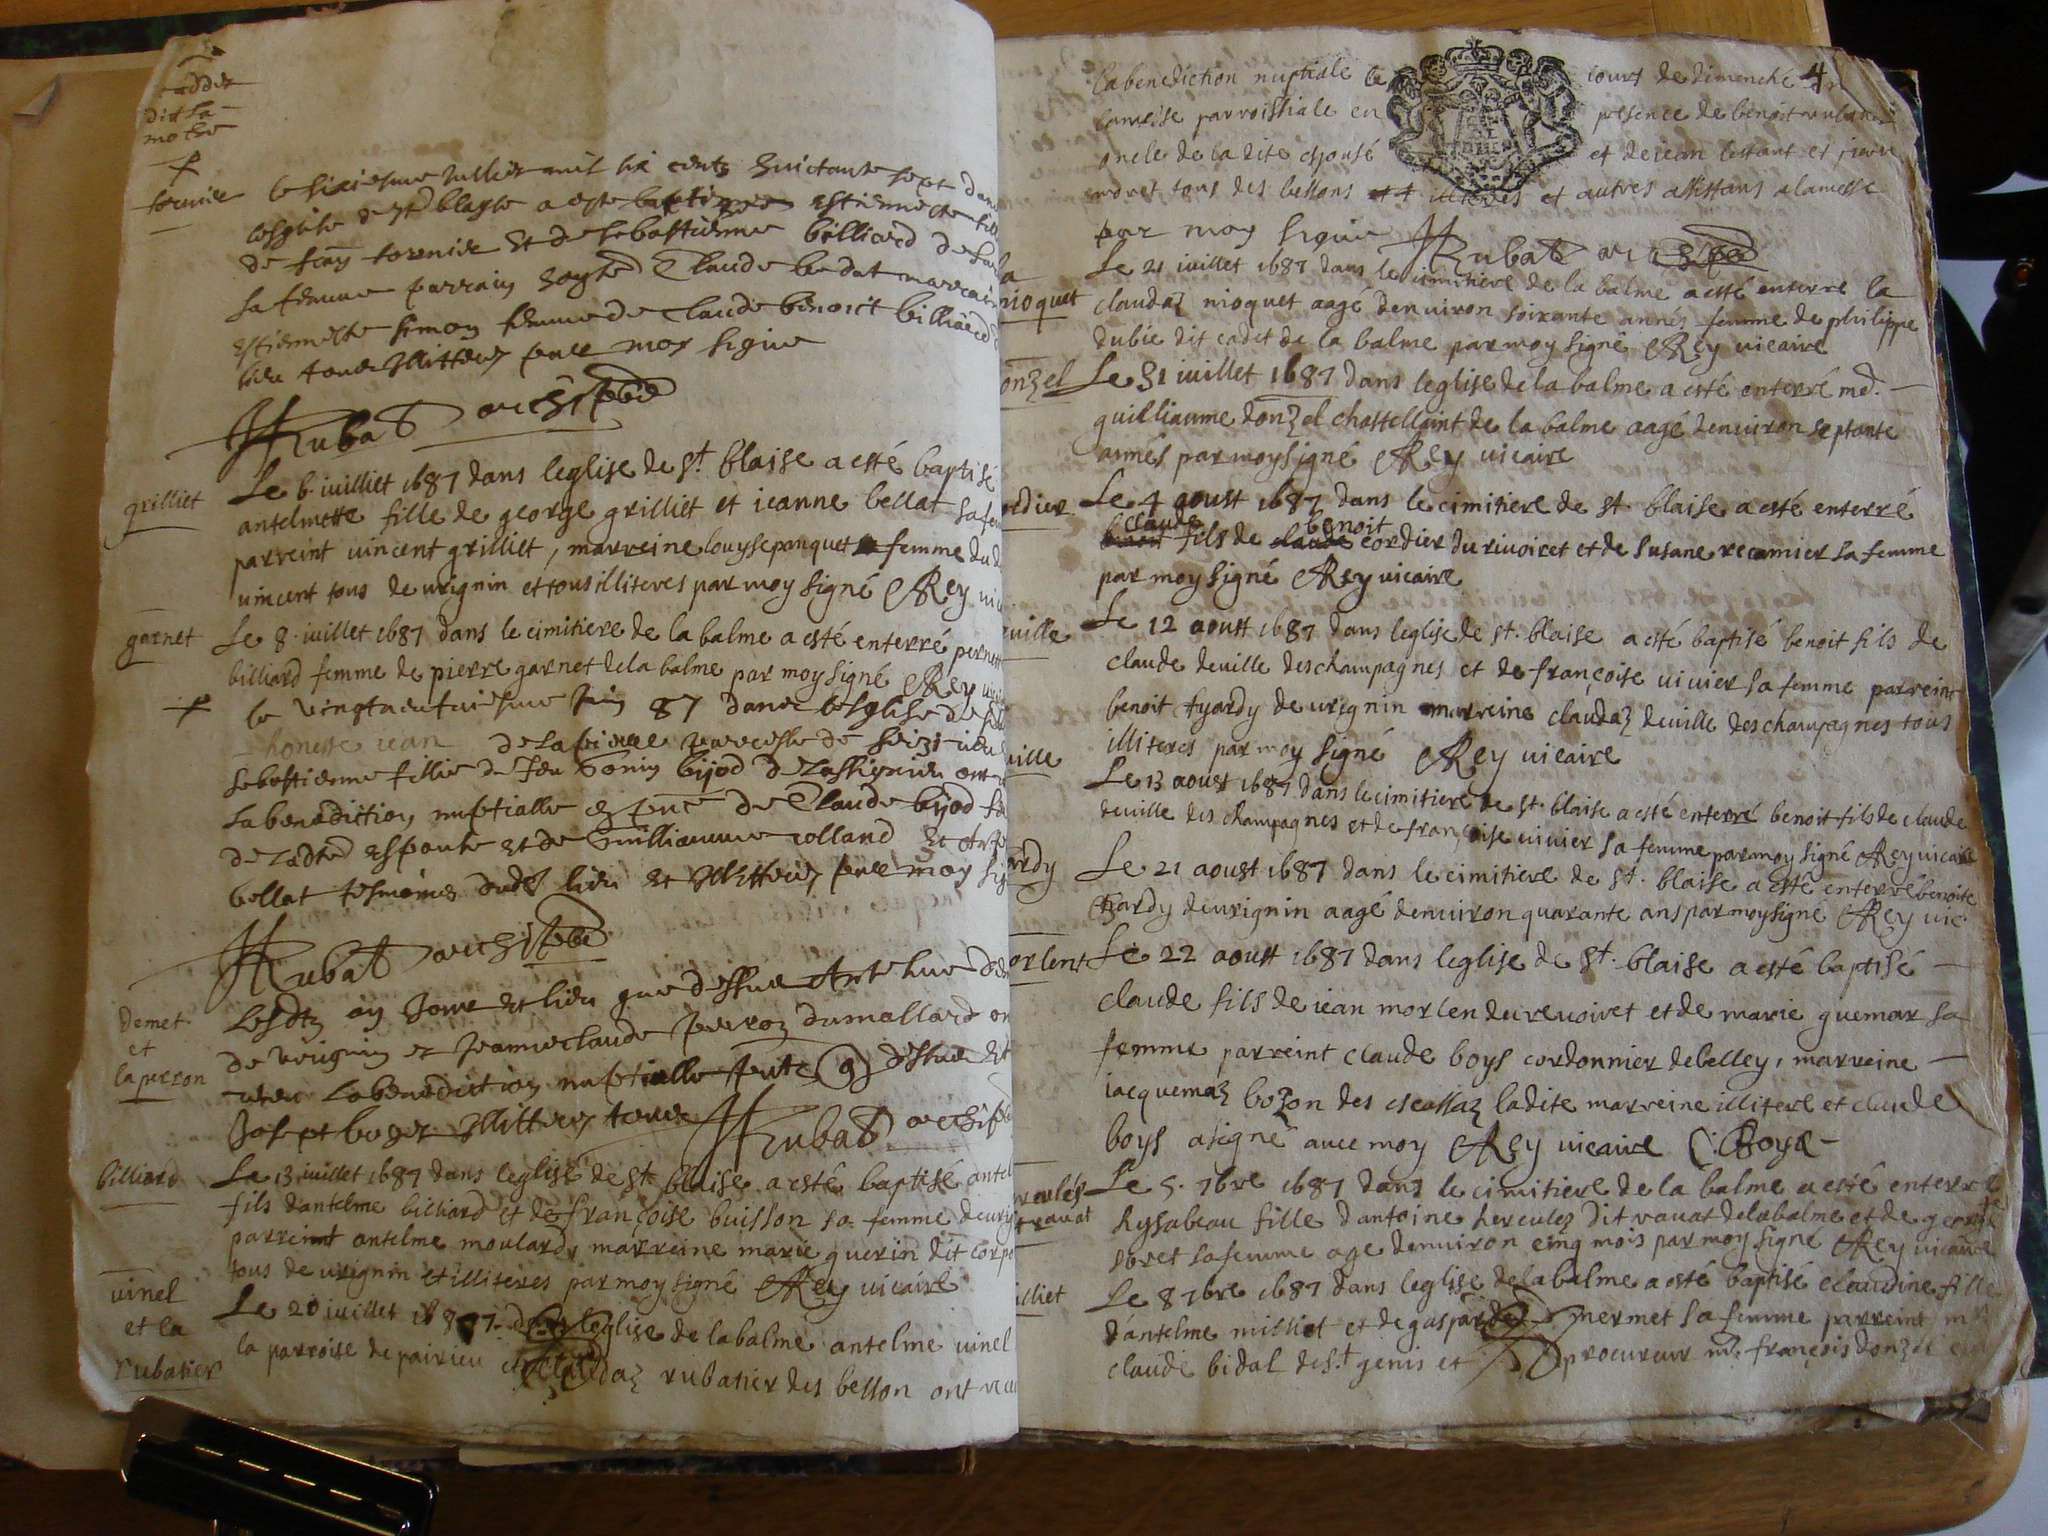 dit la
mothe
le sixiesme Julliet mil six centz huictante sept dans
lesglise de st blayse a este baptizee estiennette fill
de
sa femme parrain Claude bedat marrain
estiennette simon femme de Claude benoict billiard
lieu tous Illitters par moy signe
HRubat archipbr
grilliet
Le 6 iuilliet 1687 dans leglise de St blaise a esté baptisé
antelmette fille de george grilliet et ieanne bellat sa fem
parreint vincent grilliet, marreine louyse panquet femme du d
vincent tous de vrignin et tous illiteres par moy signé Rey vic
garnet
Le 8 iuillet 1687 dans le cimitiere de la balme a esté enterré pernett
billiard femme de pierre garnet de la balme par moy signé Rey vic
le vingtneufuiesme Juin 87 dans lesglise de
honeste iean
sebastienne fillie de feu bijod
la benediction nuptialle en pnce de Claude bijod
de ladte espouse et de Guilliaume colland et
bellat tesmoins dudt lieu et Illitters par moy sig
HRubat archipbr
demet
et
la peron
Lesdtz an Jour et lieu que dessus Anthelme
de vrignin et Jeanne claude perron du mollard on
receu la benediction nuptialle dessus et
Joseph boger Illitters tous HRubat archip
billiard
Le 13 iuillet 1687 dans leglise de St blaise a esté baptisé antel
fils dantelme billiard et de françoise buisson sa femme de vrig
parreint antelme moulard, marreine marie guerin dit corpe
tous de vrignin et illiteres par moy signé Rey vicaire
vinel
et la
rubatier
Le 20 iuillet 1687 dans leglise de la balme antelme vinel
la parroise de pairieu et claudaz rubatier des besson ont receu
4
la benediction nuptiale le cours de dimenche
la messe parroissiale en presence de benoit rubat
oncle de la dite espousé et de iean lestant et pierre
moret tous des bessons illiteres et autres assistans a la messe
par moy signe HRubat archipbr
nioquet
Le 21 iuillet 1687 dans le cimitiere de la balme a esté enterre la
claudaz nioquet aagé denuiron soixante annés femme de philippe
dubie dit cadet de la balme par moy signé Rey vicaire
onzel
Le 31 iuillet 1687 dans leglise de la balme a esté enterré md.
guilliaume donzel chastellaint de la balme aagé denuiron septante
annés par moy signé Rey vicaire
ordier
Le 4 aoust 1687 dans le cimitiere de St blaise a esté enterré
claude benoit
benoit fils de claude cordier du riuoiret et de susane recamier sa femme
par moy signé Rey vicaire
uille
Le 12 aoust 1687 dans leglise de St. blaise a esté baptisé benoit fils de
claude deuille des champagnes et de françoise viuier sa femme parreint
benoit tyardy de vrignin marreine claudaz deuille des champagnes tous
illiteres par moy signé Rey vicaire
uille
Le 13 aoust 1687 dans le cimitiere de St. blaise a esté enterré benoit fils de claude
deuille des champagnes et de françoise viuier sa femme par moy signé Rey vicaire
ardy
Le 21 aoust 1687 dans le cimitiere de St. blaise a esté enterré benoite
tiardy de vrignin aagé denuiron quarante ans par moy signé Rey vic
orlent
Le 22 aoust 1687 dans leglise de St. blaise a esté baptisé
claude fils de iean morlen du reuoiret et de marie guemar sa
femme parreint claude boys cordonnier de belley, marreine
iacquemaz bozon des escassaz ladite marreine illitere et claude
boys a signé auec moy Rey vicaire C. Boys
Le 5. 7bre 1687 dans le cimitiere de la balme a esté enterré
hysabeau fille dantoine hercules dit rauat de la balme et de
sa femme age denuiron cinq mois par moy signé Rey vicaire
illiet
Le 8 7bre 1687 dans leglise de la balme a esté baptisé claudine fille
dantelme milliet et de gasparde mermet sa femme parreint mr
claude bidal de St genis et procureur mr. françois donzel